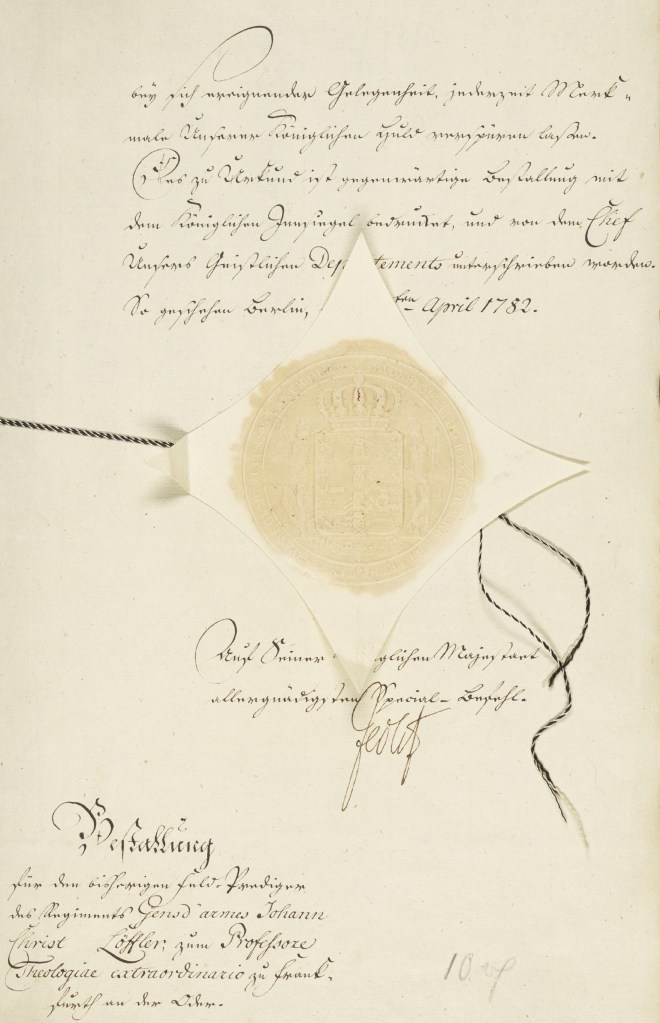 bey sich ereignender Gelegenheit, jederzeit Merk-
male Unserer Königlichen Huld verspüren laßen.
Des zu Urkund ist gegenwärtige Bestallung mit
dem Königlichen Innsiegel bedrucket, und von dem Chef
Unsers Geistlichen Dep tements unterschrieben worden.
So geschehen Berlin, ten April 1782.
Auf Seiner glichen Majestaet
allergnädigsten Special-Befehl.
Zedlitz
Bestallung
für den bisherigen Feld-Prediger
des Regiments Gensd'armes Johann
Christ Löffler, zum Professore
Theologiae extraordinario zu Frank-
furth an der Oder.